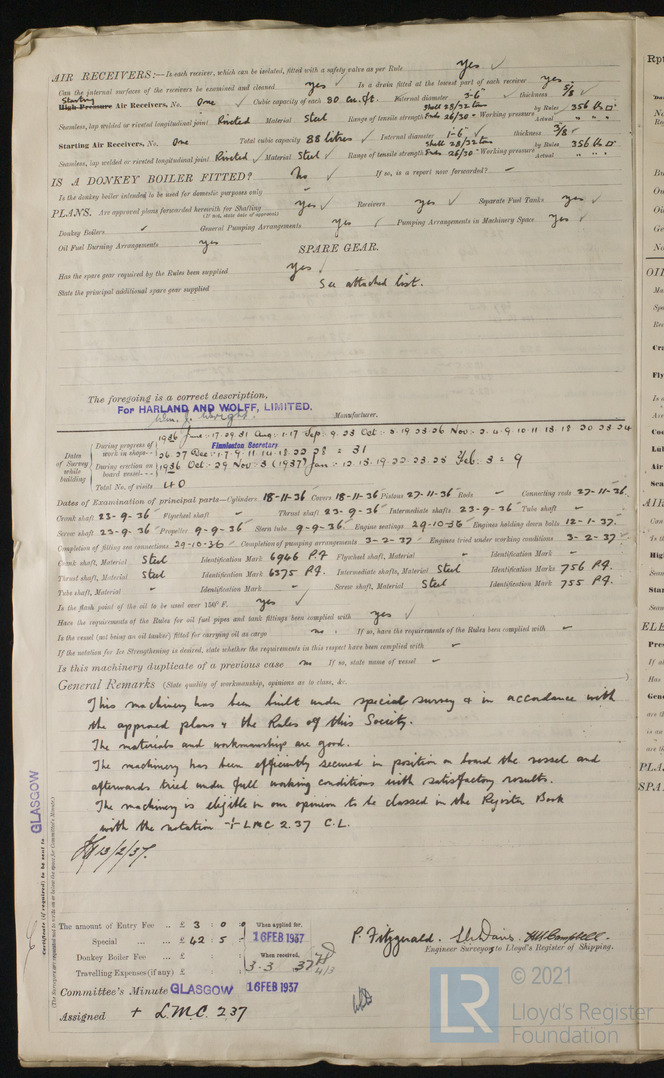 AIR RECEIVERS:— Is each receiver, which can be isolated, fitted with a safety valve as per Rule yes ✓
Can the internal surfaces of the receivers be examined and cleaned yes ✓ Is a drain fitted at the lowest part of each receiver yes ✓
Starting
High Pressure Air Receivers, No. One Cubic capacity of each 30 cu. ft. Internal diameter 3-6" ✓ thickness 5/8 ✓
Seamless, lap welded or riveted longitudinal joint Riveted Material Steel Range of tensile strength Shell 28/32 tons Ends 26/30 " Working pressure by Rules 356 lbs □" Actual " " "
Starting Air Receivers, No. One Total cubic capacity 88 litres ✓ Internal diameter 1-6" ✓ thickness 3/8 ✓
Seamless, lap welded or riveted longitudinal joint Riveted ✓ Material Steel ✓ Range of tensile strength Shell 28/32 tons Ends 26/30 " Working pressure by Rules 356 lbs □" Actual " " "
IS A DONKEY BOILER FITTED? No ✓ If so, is a report now forwarded?
Is the donkey boiler intended to be used for domestic purposes only
PLANS. Are approved plans forwarded herewith for Shafting yes ✓ Receivers yes ✓ Separate Fuel Tanks yes ✓
(If not, state date of approval)
Donkey Boilers ✓ General Pumping Arrangements yes ✓ Pumping Arrangements in Machinery Space yes ✓
Oil Fuel Burning Arrangements yes
SPARE GEAR.
Has the spare gear required by the Rules been supplied yes ✓
State the principal additional spare gear supplied See attached list.
The foregoing is a correct description,
For HARLAND AND WOLFF, LIMITED.
Wm. J. Wright. Manufacturer.
Finnieston Secretary
Dates of Survey while building
During progress of work in shops-- 1936 June:-17·29·31 Aug:-1·17 Sep: 9·23 Oct:-3·19·23·26 Nov:-2·4·9·10·11·13·18·20·23·24
26·27 Dec:-1·7·9·11·14·18·22·28 = 31
During erection on board vessel--- 1936 Oct:-29 Nov:-3 (1937) Jan:-12·13·19·22·23·25 Feb. 3 = 9
Total No. of visits 40
Dates of Examination of principal parts—Cylinders 18-11-36 Covers 18-11-36 Pistons 27-11-36 Rods Connecting rods 27-11-36
Crank shaft 23-9-36 Flywheel shaft Thrust shaft 23-9-36 Intermediate shafts 23-9-36 Tube shaft
Screw shaft 23-9-36 Propeller 9-9-36 Stern tube 9-9-36 Engine seatings 29-10-36 Engines holding down bolts 12-1-37.
Completion of fitting sea connections 29-10-36 Completion of pumping arrangements 3-2-37 Engines tried under working conditions 3-2-37
Crank shaft, Material Steel Identification Mark 6946 P.F. Flywheel shaft, Material Identification Mark
Thrust shaft, Material Steel Identification Mark 6375 P.F. Intermediate shafts, Material Steel Identification Marks 756 P.F.
Tube shaft, Material Identification Mark Screw shaft, Material Steel Identification Mark 755 P.F.
Is the flash point of the oil to be used over 150° F. yes ✓
Have the requirements of the Rules for oil fuel pipes and tank fittings been complied with yes ✓
Is the vessel (not being an oil tanker) fitted for carrying oil as cargo no If so, have the requirements of the Rules been complied with
If the notation for Ice Strengthening is desired, state whether the requirements in this respect have been complied with
Is this machinery duplicate of a previous case no If so, state name of vessel
General Remarks (State quality of workmanship, opinions as to class, &c.
This machinery has been built under special survey & in accordance with
the approved plans & the Rules of this Society.
The materials and workmanship are good.
The machinery has been efficiently secured in position on board the vessel and
afterwards tried under full working conditions with satisfactory results.
The machinery is eligible in our opinion to be classed in the Register Book
with the notation + LMC 2.37 C.L.
13/2/37.
GLASGOW
Certificate (if required) to be sent to
(The Surveyors are requested not to write on or below the space for Committee's Minute)
The amount of Entry Fee .. £ 3 : 0 : 0 When applied for,
Special ... £ 42 : 5 : 16 FEB 1937
Donkey Boiler Fee ... £ : : When received,
Travelling Expenses (if any) £ : : 3.3 37 4/3
P. Fitzgerald. S. Davis. Campbell.
Engineer Surveyors to Lloyd's Register of Shipping.
Committee's Minute GLASGOW 16 FEB 1937
Assigned + L.M.C. 2.37
LR
© 2021
Lloyd's Register
Foundation